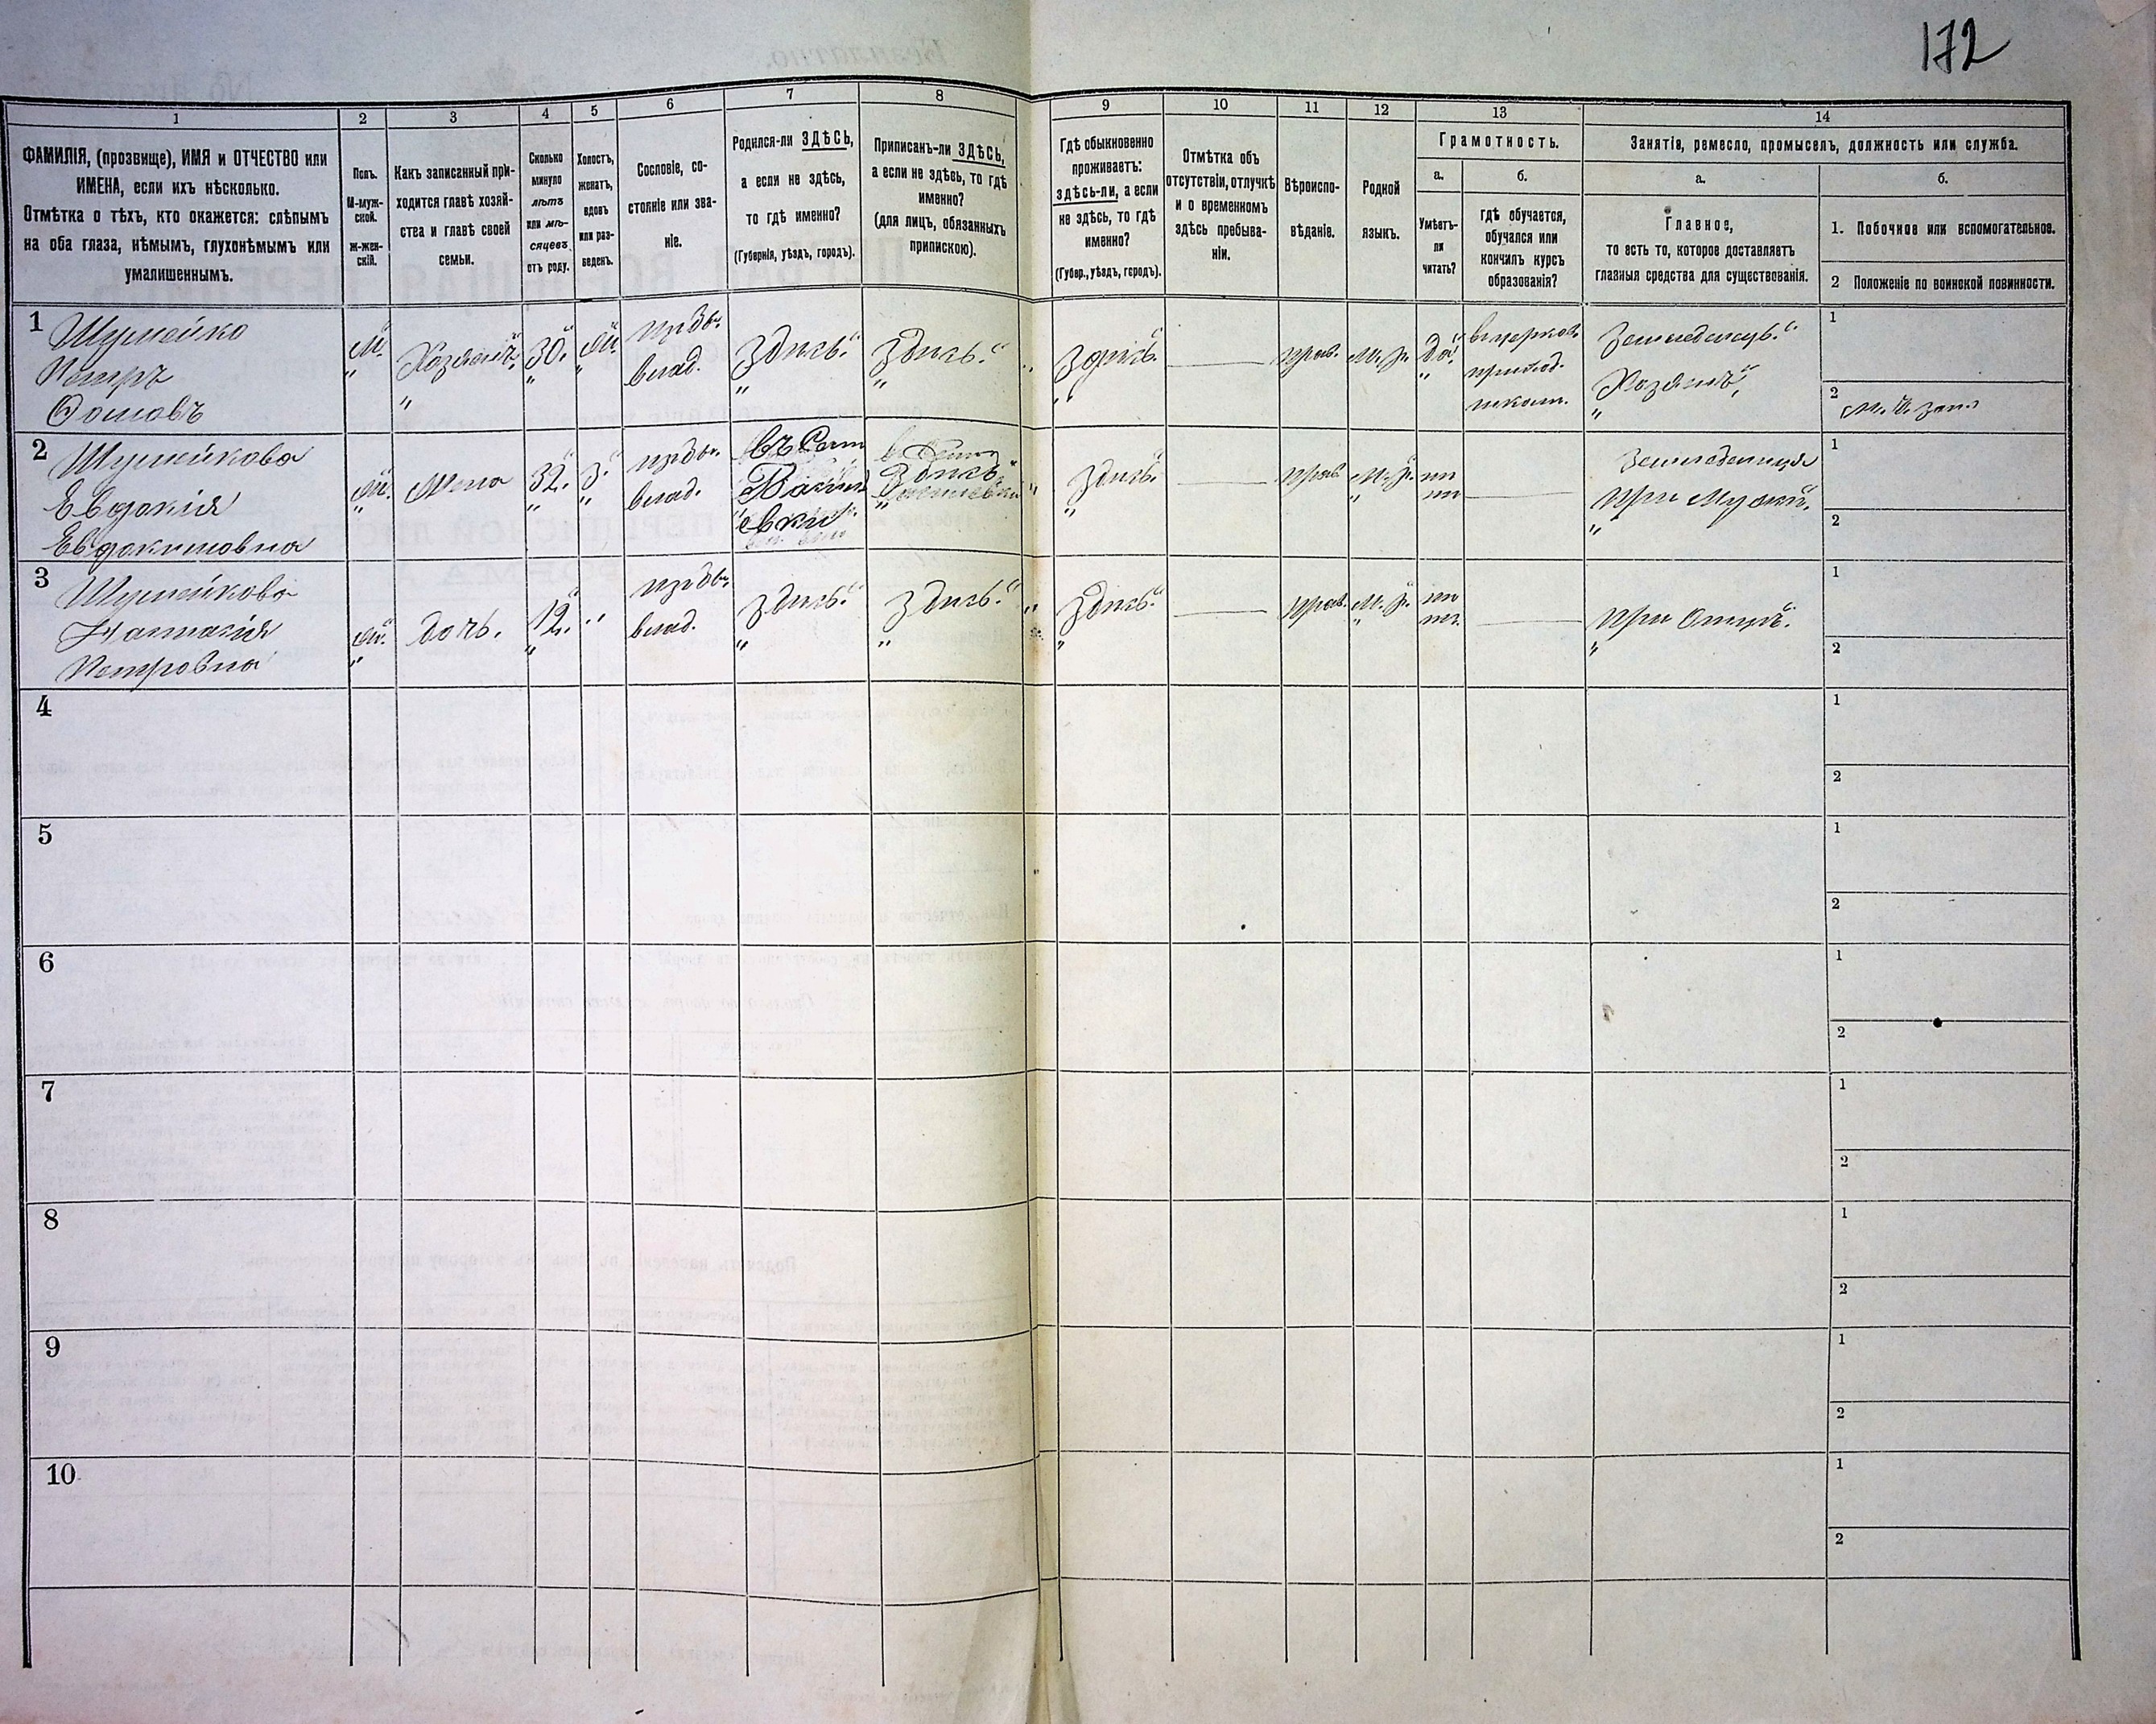 172
1
2
3
4
5
6
7
8
9
10
11
12
13
14
ФАМИЛІЯ, (прозвище), ИМЯ и ОТЧЕСТВО или
ИМЕНА, если ихъ нѣсколько.
Отмѣтка о тѣхъ, кто окажется: слѣпымъ
на оба глаза, нѣмымъ, глухонѣмымъ или
умалишеннымъ.
Полъ.
М-муж-
ской.
Ж-жен-
скій.
Какъ записанный при-
ходится главѣ хозяй-
ства и главѣ своей
семьи.
Сколько
минуло
лѣтъ
или мѣ-
сяцевъ
отъ роду.
Холостъ,
женатъ,
вдовъ
или раз-
веденъ.
Сословіе, со-
стояніе или зва-
ніе.
Родился-ли ЗДѢСЬ,
а если не здѣсь,
то гдѣ именно?
(Губернія, уѣздъ, городъ).
Приписанъ-ли ЗДѢСЬ,
а если не здѣсь, то гдѣ
именно?
(для лицъ, обязанныхъ
припискою).
Гдѣ обыкновенно
проживаетъ:
здѣсь-ли, а если
не здѣсь, то гдѣ
именно?
(Губер., уѣздъ, городъ).
Отмѣтка объ
отсутствіи, отлучкѣ
и о временномъ
здѣсь пребыва-
ніи.
Вѣроиспо-
вѣданіе.
Родной
языкъ.
Грамотность.
а.
Умѣетъ-
ли
читать?
б.
гдѣ обучается,
обучался или
кончилъ курсъ
образованія?
Занятія, ремесло, промыселъ, должность или служба.
а.
Главное,
то есть то, которое доставляетъ
главныя средства для существованія.
б.
1. Побочное или вспомогательное.
2 Положеніе по воинской повинности.
1
Шумейко
Петръ
Ѳомовъ
М.
Хозяинъ
30.
Ж.
влад.
Здѣсь.
Здѣсь.
Здѣсь.
прав.
М. р.
да
приход.
школ.
Земледелецъ.
Хозяинъ
1
2
2
Шумейкова
Евдокія
Евдокимовна
Ж.
Жена
32.
З.
влад.
Здѣсь
Здѣсь
прав.
М. р.
При Мужѣ.
1
2
3
Шумейкова
Наталія
Петровна
Ж.
дочь.
12.
влад.
Здѣсь.
Здѣсь.
Здѣсь.
прав.
М. р.
при Отцѣ.
1
2
4
1
2
5
1
2
6
1
2
7
1
2
8
1
2
9
1
2
10
1
2